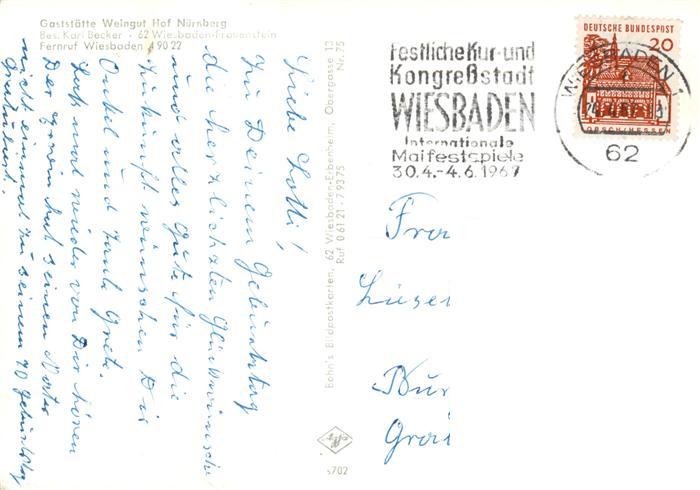 Gaststätte Weingut Hof Nürnberg
Bes. Karl Becker · 62 Wiesbaden-Frauenstein
Fernruf Wiesbaden 4 90 22
Liebe Lotti!
Zu Deinem Geburtstag
die herzlichsten Glückwünsche
und alles Gute für die
Zukunft wünschen Dir
Onkel und Tante Grete.
Lass mal wieder von Dir hören
Der hat seinem Vater
nicht einmal zu seinem 70 Geburtstag
gratuliert.
Bohn's Bildpostkarten, 62 Wiesbaden-Erbenheim, Obergasse 13
Ruf 0 61 21 - 7 93 75
Nr. 75
s702
Festliche Kur- und
Kongreßstadt
WIESBADEN
Internationale
Maifestspiele
30.4.-4.6.1967
DEUTSCHE BUNDESPOST
20
LORSCH/HESSEN
WIESBADEN 1
62
Fra